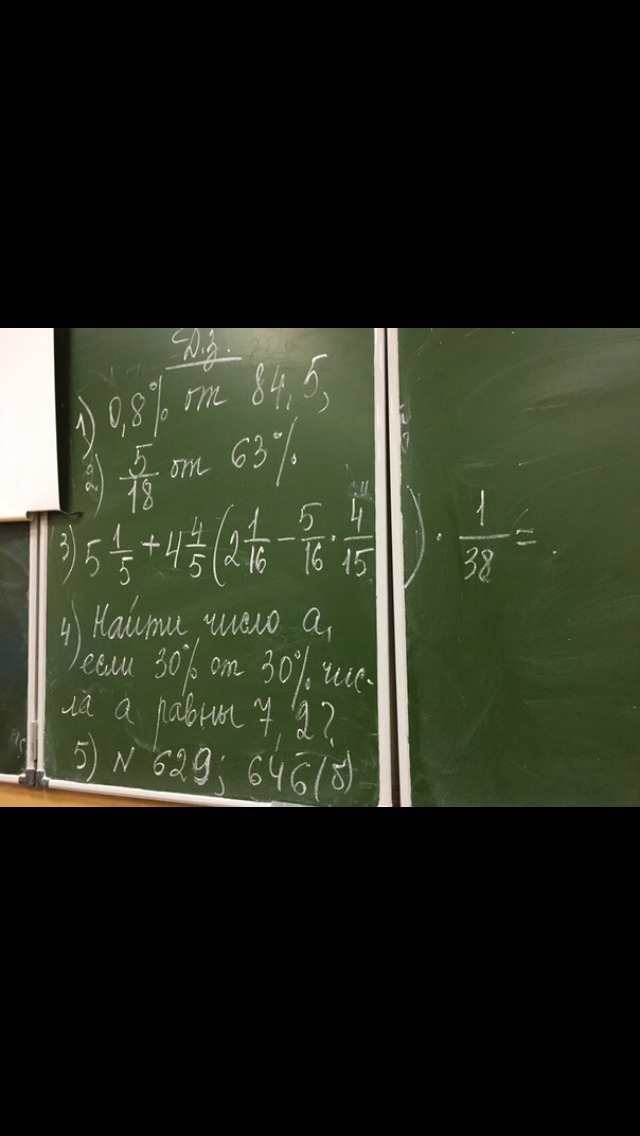 Д.з.
1) 0,8% от 84,5;
2) 5/18 от 63%
3) 5 1/5 + 4 4/5 (2 1/16 - 5/16 · 4/15) · 1/38 =
4) Найти число а,
если 30% от 30% чис-
ла а равны 7,2?
5) N 629; 646(б)